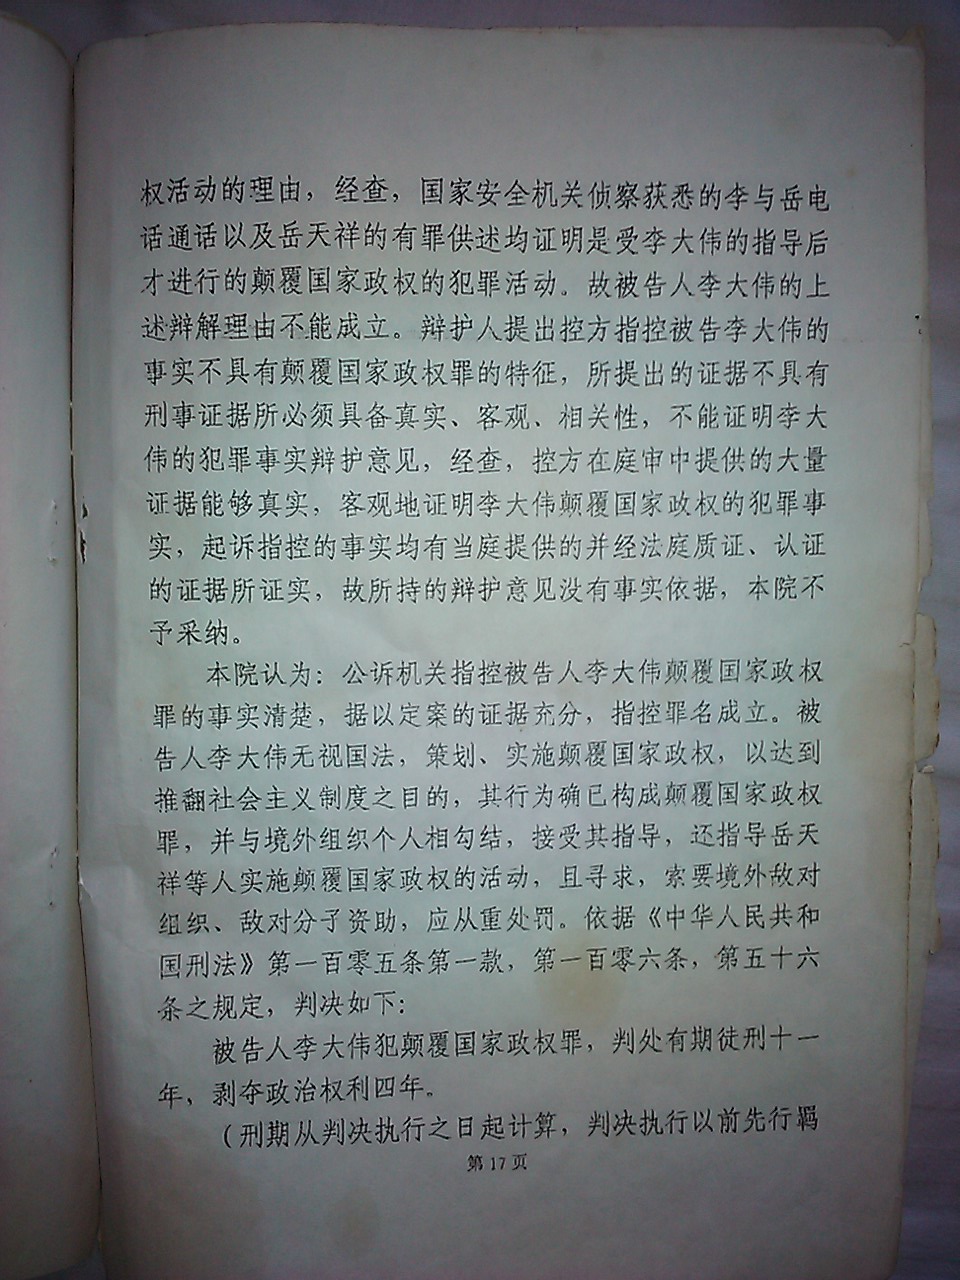 权活动的理由，经查，国家安全机关侦察获悉的李与岳电
话通话以及岳天祥的有罪供述均证明是受李大伟的指导后
才进行的颠覆国家政权的犯罪活动。故被告人李大伟的上
述辩解理由不能成立。辩护人提出控方指控被告李大伟的
事实不具有颠覆国家政权罪的特征，所提出的证据不具有
刑事证据所必须具备真实、客观、相关性，不能证明李大
伟的犯罪事实辩护意见，经查，控方在庭审中提供的大量
证据能够真实，客观地证明李大伟颠覆国家政权的犯罪事
实，起诉指控的事实均有当庭提供的并经法庭质证、认证
的证据所证实，故所持的辩护意见没有事实依据，本院不
予采纳。
本院认为：公诉机关指控被告人李大伟颠覆国家政权
罪的事实清楚，据以定案的证据充分，指控罪名成立。被
告人李大伟无视国法，策划、实施颠覆国家政权，以达到
推翻社会主义制度之目的，其行为确已构成颠覆国家政权
罪，并与境外组织个人相勾结，接受其指导，还指导岳天
祥等人实施颠覆国家政权的活动，且寻求，索要境外敌对
组织、敌对分子资助，应从重处罚。依据《中华人民共和
国刑法》第一百零五条第一款，第一百零六条，第五十六
条之规定，判决如下：
被告人李大伟犯颠覆国家政权罪，判处有期徒刑十一
年，剥夺政治权利四年。
（刑期从判决执行之日起计算，判决执行以前先行羁
第 17 页